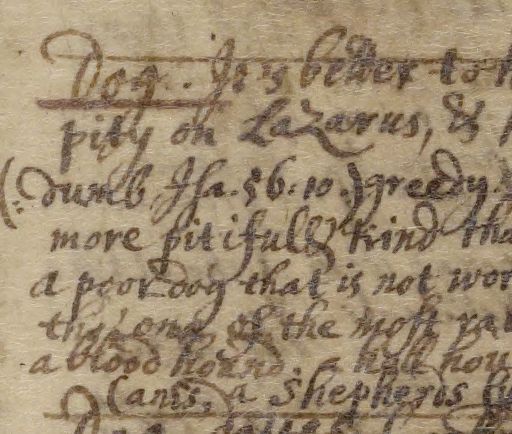 Dog. It is better to
pity on Lazarus, &
(: dumb Isa. 56. 10.) greedy
more pitifull, kind tha
a poor dog that is not wor
of the most ra
a blood hound, a hell hou
(ans, a Shepherds